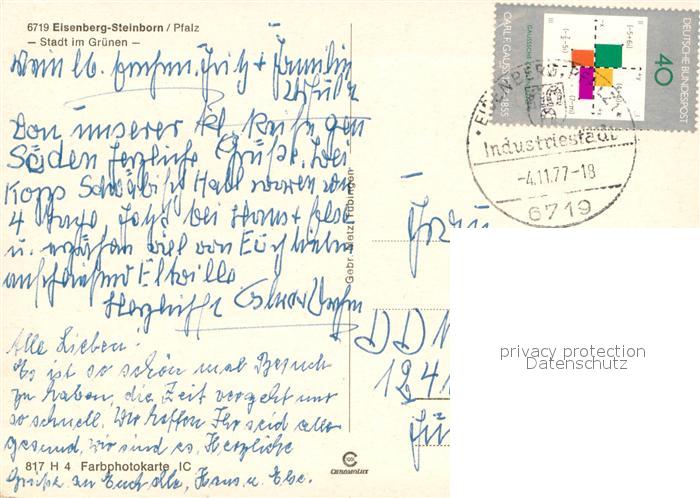 6719 Eisenberg-Steinborn / Pfalz
— Stadt im Grünen —
Fritz + Familie
Von unserer kl. Reise gen
Süden herzliche Grüße. Bei
Kopp Schwäbisch Hall waren wir
4 Tage jetzt bei Hans + Else
u. erzählen viel von Euch Lieben
anschließend Eltville
Herzlichst
Alle Lieben!
Es ist so schön mal Besuch
zu haben, die Zeit vergeht nur
so schnell. Wir hoffen Ihr seid alle
gesund, wir sind es. Herzliche
817 H 4 Farbphotokarte IC
Grüße an Euch alle, Hans u. Else.
Gebr. Metz, Tübingen
CARL F. GAUSS
1855
DEUTSCHE BUNDESPOST
40
EISENBERG
Industriestadt
-4.11.77-18
6719
Frau
DDR
1241
privacy protection
Datenschutz